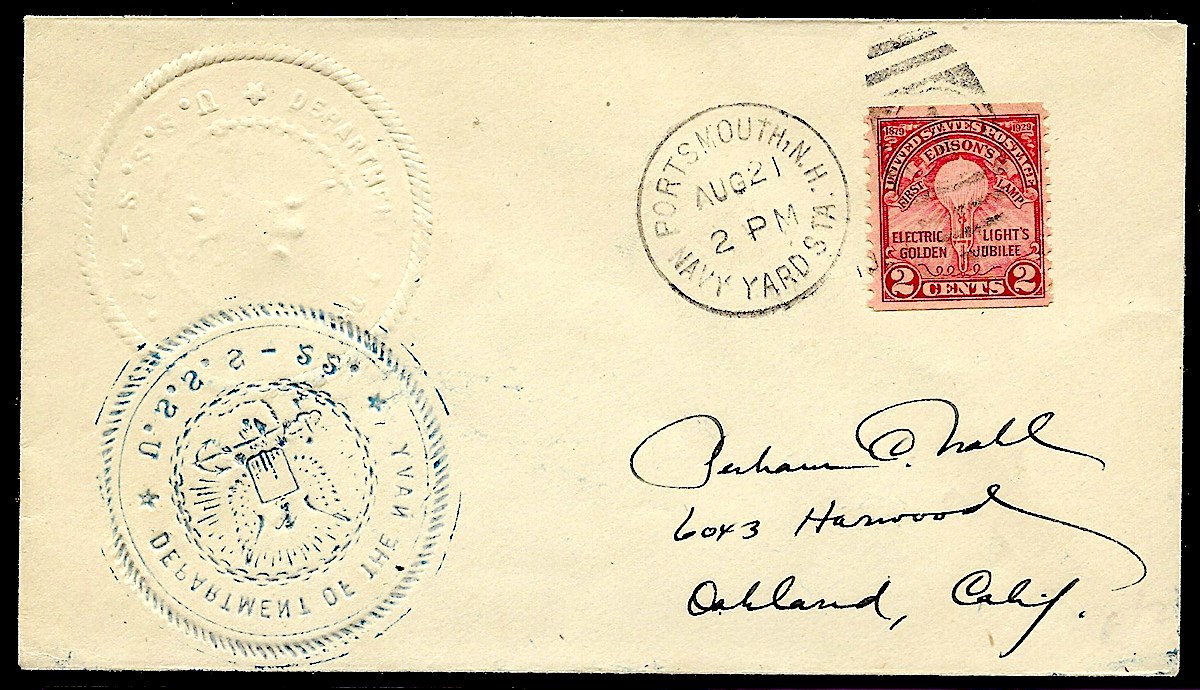 U.S.S. ★ DEPARTMEN
U.S.S. S-22. ★ DEPARTMENT OF THE NAVY ★
PORTSMOUTH, N.H.
AUG 21
2 PM
NAVY YARD STA.
1879 1929
UNITED STATES POSTAGE
EDISON'S
FIRST LAMP
ELECTRIC LIGHT'S
GOLDEN JUBILEE
2 CENTS 2
6043 Harwood
Oakland, Calif.